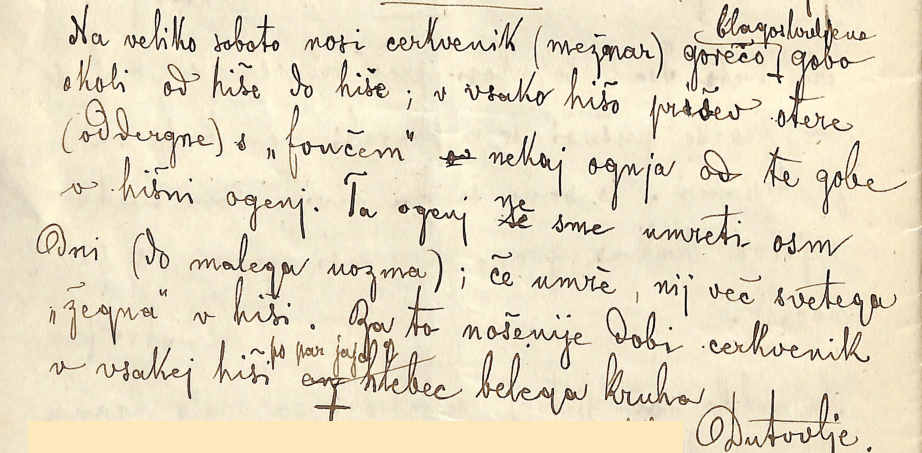 blagoslovljeno
Na veliko soboto nosi cerkvenik (mežnar) gorečo gobo
okoli od hiše do hiše; v vsako hišo prišev otere
(oddergne) s „fovčem“ nekaj ognja od te gobe
v hišni ogenj. Ta ogenj ne sme umreti osm
dni (do malega vozma); če umrè, nij več svetega
„žegna“ v hiši. Za to nošenije dobi cerkvenik
po par jajc
v vsakej hiši hlebec belega kruha
Dutovlje.